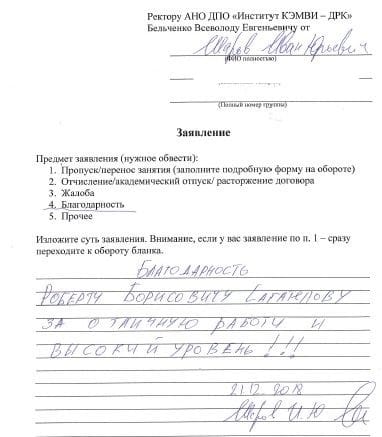 Ректору АНО ДПО «Институт КЭМВИ – ДРК»
Бельченко Всеволоду Евгеньевичу от
Шаров Иван Юрьевич
(ФИО полностью)
(Полный номер группы)
Заявление
Предмет заявления (нужное обвести):
1. Пропуск/перенос занятия (заполните подробную форму на обороте)
2. Отчисление/академический отпуск/ расторжение договора
3. Жалоба
4. Благодарность
5. Прочее
Изложите суть заявления. Внимание, если у вас заявление по п. 1 – сразу
переходите к обороту бланка.
Благодарность
Роберту Борисовичу
за отличную работу и
высокий уровень!!!
21.12.2018
Шаров И.Ю